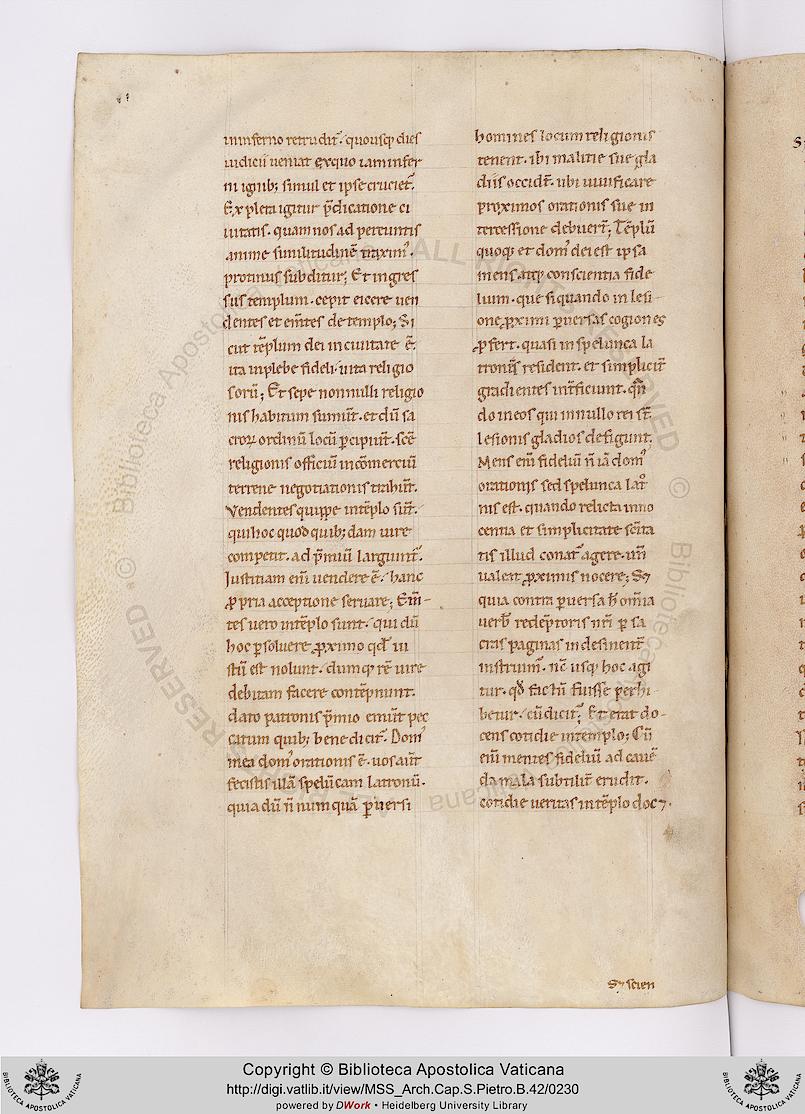 in inferno retrudit̃. quousq; dies
iudicii veniat exquo iam infer
ni ignib; simul et ipse crucietᷣ.
Expleta igitur p̃dicatione ci
uitatis. quam nos ad pereuntis
anime similitudinẽ traximꝰ.
protinus subditur; Et ingres
sus templum. cepit eicere uen
dentes et em̃tes de templo; Si
cut tẽplum dei in ciuitate ẽ.
ita in plebe fideli. uita religio
sorũ; Et sepe nonnulli religio
nis habitum sumũt. et dũ sa
croꝝ ordinũ locũ ꝑcipiunt. scẽ
religionis officiũ in cõmerciũ
terrene negotiationis trahũt.
Vendentes quippe intẽplo sũt.
qui hoc quod quib;dam iure
competit. ad p̃miũ largiuntᷣ.
Justitiam eni᷃ uendere ẽ. hanc
ꝓ pria acceptione seruare; Em̃
tes uero intẽplo sunt. qui dũ
hoc ꝑsoluere proximo qđ iu
stũ est nolunt. dumq; rẽ iure
debitam facere contẽpnunt.
dato patronis p̃mio emũt pec
catum quib; bene dicitᷣ. Domꝰ
mea domꝰ orationis ẽ. uos aũt
fecistis illã spelũcam latronũ.
quia dũ ñ num quã ꝑuersi
homines locum religionis
tenent. ibi malitie sue gla
diis occidũt. ubi uiuificare
proximos orationis sue in
tercessione debuerũt; Tẽplũ
quoq; et domꝰ dei est ipsa
mens atq; conscientia fide
lium. que siquando in lesi
one proximi ꝑuersas cogitationes
ꝓfert. quasi in spelunca la
trones resident. et simplicit᷑
gradientes int̃ficiunt. qñ
do in eos qui in nullo rei st̃.
lesionis gladios defigunt.
Mens eni᷃ fideliũ ñ iã domꝰ
orationis sed spelunca latro
nis est. quando relicta inno
centia et simplicitate scĩta
tis illud conatᷣ agere. unde
ualeat proximis nocere; Sꝫ
quia contra ꝑuersa hec omĩa
uerbis redẽptoris nr̃i ꝑ sa
cras paginas indesinent᷑
instruimᷣ. nc̃ usq; hoc agi
tur. qđ factũ fuisse perhi
betur. cũ dicitᷣ; Et erat do
cens cotidie in templo; Cũ
eni᷃ mentes fideliũ ad cauẽ
da mala subtilit᷑ erudit.
cotidie ueritas intẽplo docꝫ.
Sꝫ scien
Copyright © Biblioteca Apostolica Vaticana
http://digi.vatlib.it/view/MSS_Arch.Cap.S.Pietro.B.42/0230
powered by DWork • Heidelberg University Library